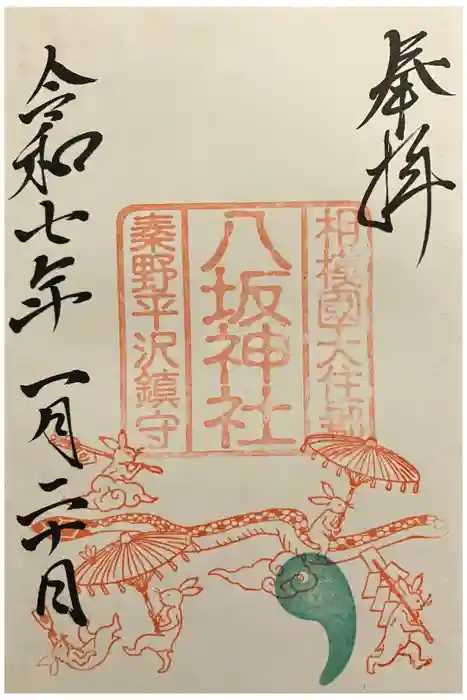 奉拝
相模國大住郡
八坂神社
秦野平沢鎮守
令和七年 一月二十日